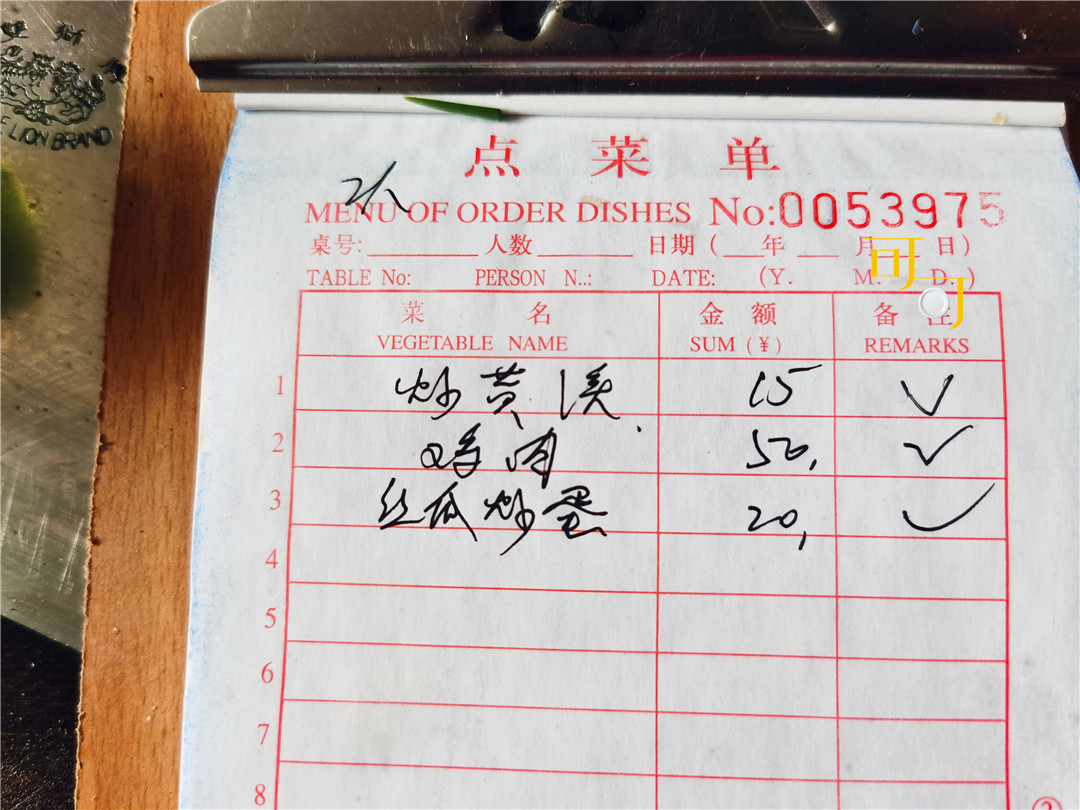 雙獅
LION BRAND
点菜单
MENU OF ORDER DISHES No:0053975
桌号: 人数 日期 ( 年 月 日)
TABLE No: PERSON N..: DATE: (Y. M. D. )
可
菜 名 金 额 备 注
VEGETABLE NAME SUM (¥) REMARKS
1 炒黄 15 ✓
2 鸡肉 50, ✓
3 丝瓜炒蛋 20, ✓
4
5
6
7
8